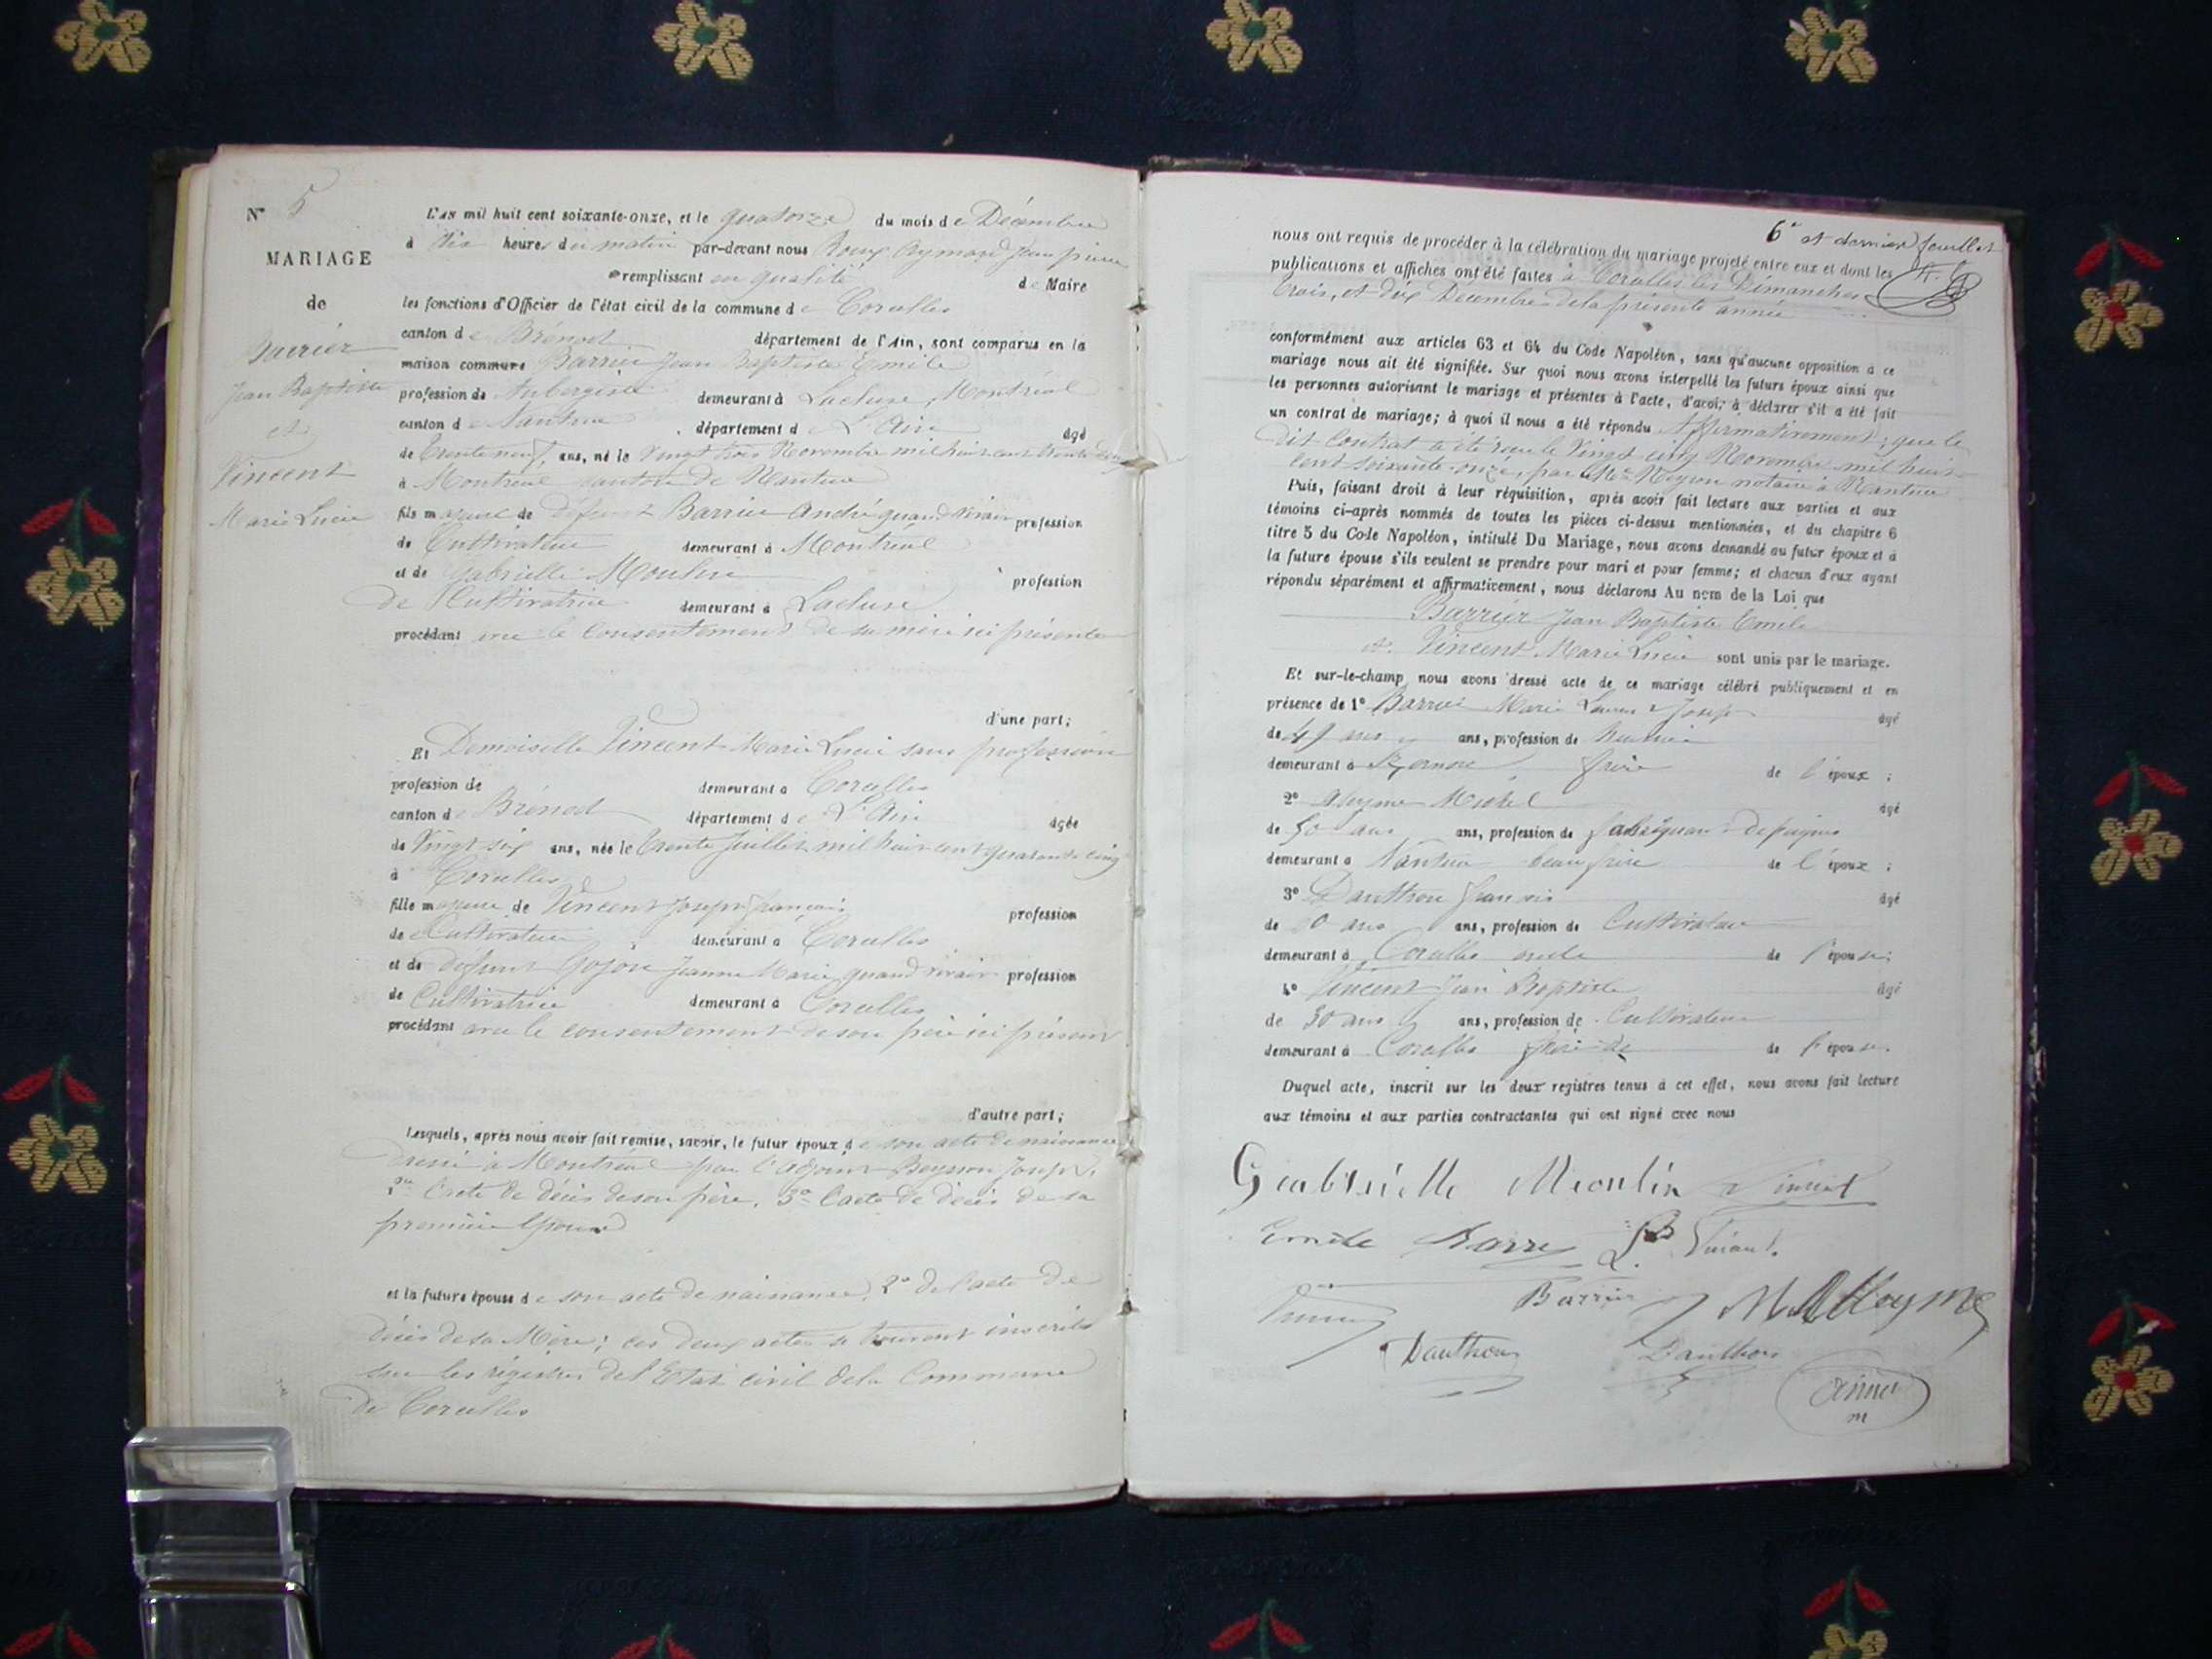 N° 5
MARIAGE
de
Barrier
Jean Baptiste
et
Vincent
Marie Lucie
L'an mil huit cent soixante-onze, et le quatorze du mois de Décembre
à dix heures du matin par-devant nous Roux Aymard Jean pierre
remplissant en qualité de Maire
les fonctions d'Officier de l'état civil de la commune de Corcelles
canton de Brénod département de l'Ain, sont comparus en la
maison commune Barrier Jean Baptiste Emile
profession de Aubergiste demeurant à Lacluse, Montréal
canton de Nantua département de L'Ain âgé
de trente neuf ans, né le vingt trois Novembre mil huit cent trente deux
à Montréal canton de Nantua
fils majeur de défunt Barrier André quand vivait profession
de Cultivateur demeurant à Montréal
et de Gabrielle Moulin profession
de Cultivatrice demeurant à Lacluse
procédant avec le consentement de sa mère ici présente
d'une part;
Et Demoiselle Vincent Marie Lucie sans profession
profession de demeurant à Corcelles
canton de Brénod département de L'Ain âgée
de Vingt six ans, née le trente Juillet mil huit cent quarante cinq
à Corcelles
fille majeure de Vincent Joseph François profession
de Cultivateur demeurant à Corcelles
et de défunte Gojon Jeanne Marie quand vivait profession
de Cultivatrice demeurant à Corcelles
procédant avec le consentement de son père ici présent
d'autre part;
Lesquels, après nous avoir fait remise, savoir, le futur époux de son acte de naissance
dressé à Montréal par l'adjoint Joseph,
2° l'acte de décès de son père, 3° l'acte de décès de sa
première Epouse
et la future épouse de son acte de naissance, 2° de l'acte de
décès de sa Mère; ces deux actes se trouvent inscrits
sur les régistres de l'Etat civil de la Commune
de Corcelles
6e et dernier feuillet
nous ont requis de procéder à la célébration du mariage projeté entre eux et dont les
publications et affiches ont été faites à Corcelles les Dimanches
trois, et dix Décembre de la présente année
conformément aux articles 63 et 64 du Code Napoléon, sans qu'aucune opposition à ce
mariage nous ait été signifiée. Sur quoi nous avons interpellé les futurs époux ainsi que
les personnes autorisant le mariage et présentes à l'acte, d'avoir à déclarer s'il a été fait
un contrat de mariage; à quoi il nous a été répondu Affirmativement; que le
dit Contrat a été reçu le Vingt cinq Novembre mil huit
cent soixante-onze, par Me notaire à Nantua
Puis, faisant droit à leur réquisition, après avoir fait lecture aux parties et aux
témoins ci-après nommés de toutes les pièces ci-dessus mentionnées, et du chapitre 6
titre 5 du Code Napoléon, intitulé Du Mariage, nous avons demandé au futur époux et à
la future épouse s'ils veulent se prendre pour mari et pour femme; et chacun d'eux ayant
répondu séparément et affirmativement, nous déclarons Au nom de la Loi que
Barrier Jean Baptiste Emile
et Vincent Marie Lucie sont unis par le mariage.
Et sur-le-champ nous avons dressé acte de ce mariage célébré publiquement et en
présence de 1° Barrier Marie Joseph âgé
de 49 ans ans, profession de
demeurant à Izernore frère de l'époux;
2° Alleyme Michel âgé
de 50 ans ans, profession de fabriquant de peignes
demeurant à Nantua beau frère de l'époux;
3° Danthon François âgé
de 50 ans ans, profession de Cultivateur
demeurant à Corcelles oncle de l'épouse;
4° Vincent Jean Baptiste âgé
de 30 ans ans, profession de Cultivateur
demeurant à Corcelles frère de de l'épouse.
Duquel acte, inscrit sur les deux registres tenus à cet effet, nous avons fait lecture
aux témoins et aux parties contractantes qui ont signé avec nous
Gabrielle Moulin Vincent
Emile Barrier Vincent
Barrier M Alleyme
Danthon Danthon